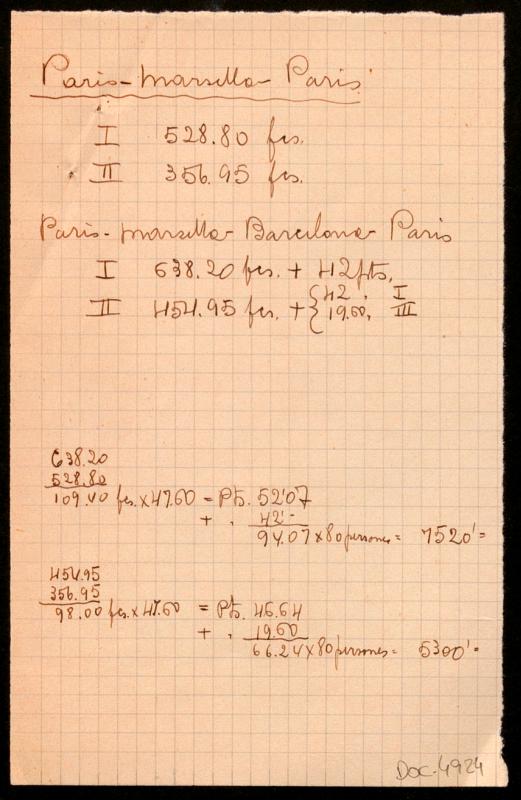 Paris - Marsella - Paris
I 528.80 fcs.
II 356.95 fcs.
Paris - Marsella - Barcelona - Paris
I 638.20 fcs. + 42 pts,
II 454.95 fcs. + { 42 , I
19.60, III
638.20
528.80
109.40 fcs. x 47.60 = Pts. 52'07
+ , 42'-
94.07 x 80 persones = 7520'=
454.95
356.95
98.00 fcs. x 47.60 = Pts. 46.64
+ , 19.60
66.24 x 80 persones = 5300'=
DOC. 4924